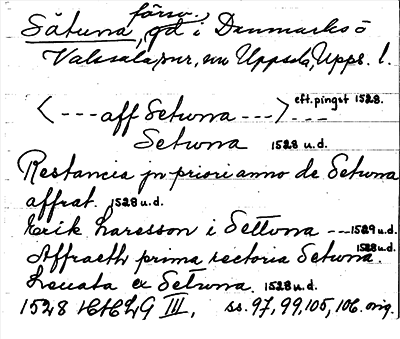 försv.
Sätuna, gd i Danmarks o
Vaksala snr, nu Uppsala, Upps. l.
<---aff Setwna---> eft. pingst 1528.
Setwna 1528 u.d.
Restancia jn priori anno de Setwna
affrat. 1528 u.d.
Erik Larsson i Settwna --- 1529 u.d.
Affraeth prima rectoria Setwna. 1528 u.d.
Leuata ex Setwna. 1528 u.d.
1528 HH LG III, ss. 97, 99, 105, 106. orig.